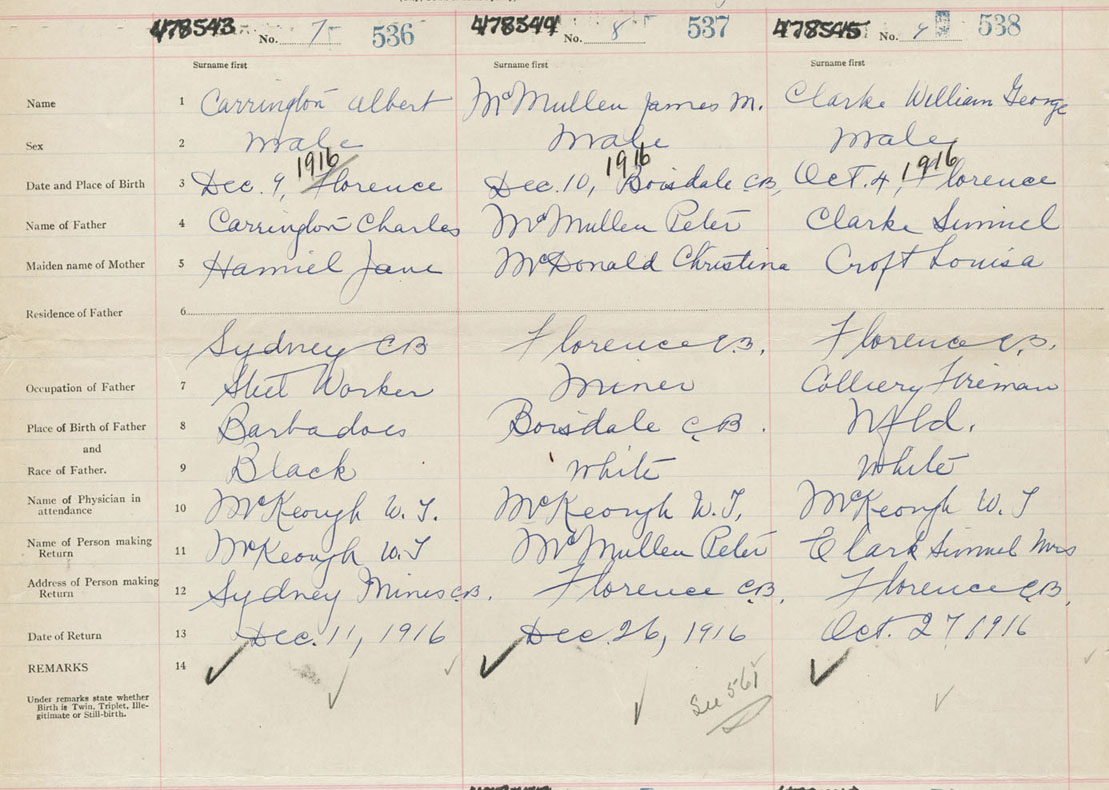 478543 No. 7 536 478544 No. 8 537 478545 No. 9 538
Surname first Surname first Surname first
Name 1 Carrington Albert McMullen James M. Clarke William George
Sex 2 Male Male Male
1916 1916 1916
Date and Place of Birth 3 Dec. 9, Florence Dec. 10, Boisdale C.B, Oct. 4, Florence
Name of Father 4 Carrington Charles McMullen Peter Clarke Simmel
Maiden name of Mother 5 Hamiel Jane McDonald Christina Croft Louisa
Residence of Father 6
Sydney CB Florence C.B. Florence C.B.
Occupation of Father 7 Worker Miner Colliery Fireman
Place of Birth of Father 8 Barbadoes Boisdale C.B. Nfld.
and
Race of Father. 9 Black White White
Name of Physician in
attendance 10 McKeough W. J. McKeough W. J, McKeough W. J
Name of Person making
Return 11 McKeough W. J McMullen Peter Clark Simmel Mrs
Address of Person making
Return 12 Sydney Mines C.B. Florence C.B, Florence C.B,
Date of Return 13 Dec. 11, 1916 Dec. 26, 1916 Oct. 27 1916
REMARKS 14
Under remarks state whether
Birth is Twin, Triplet, Ille-
gitimate or Still-birth.
See 561